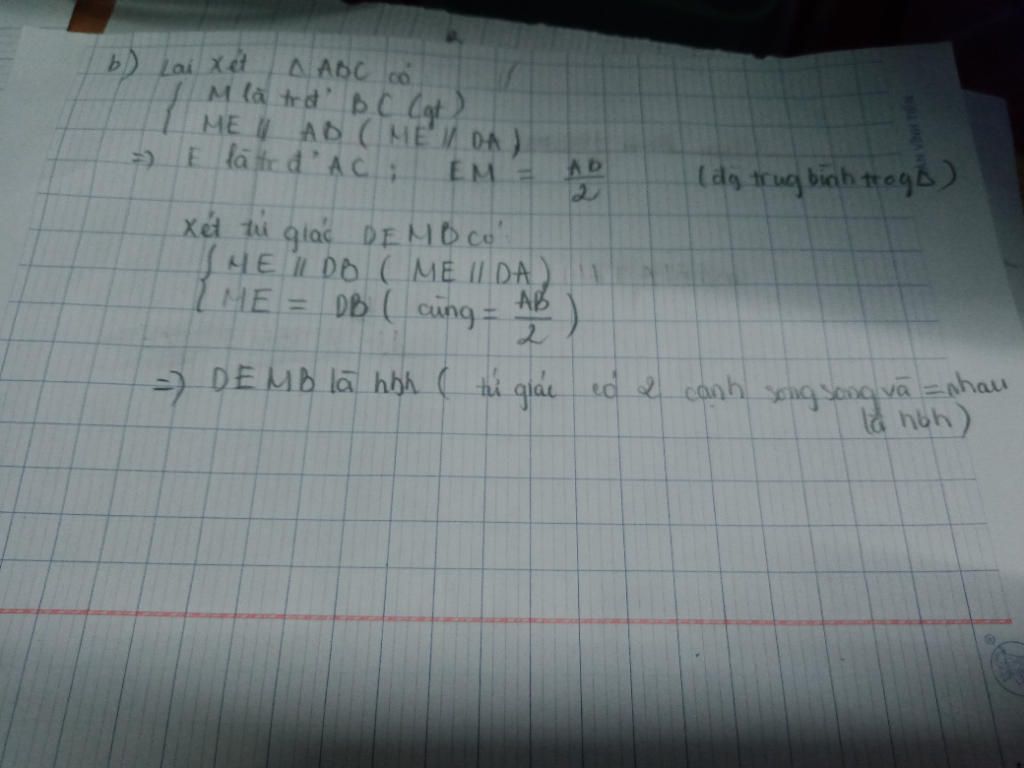 b) Lại xét Δ ABC có
{ M là trđ' BC (gt)
ME // AB ( ME // DA)
=> E là trđ' AC ; EM = AB/2 (đg trug bình trog Δ)
Xét tứ giác DEMB có
{ ME // DB ( ME // DA)
ME = DB ( cùng = AB/2 )
=> DEMB là hbh ( tứ giác có 2 cạnh song song và = nhau
là hbh)